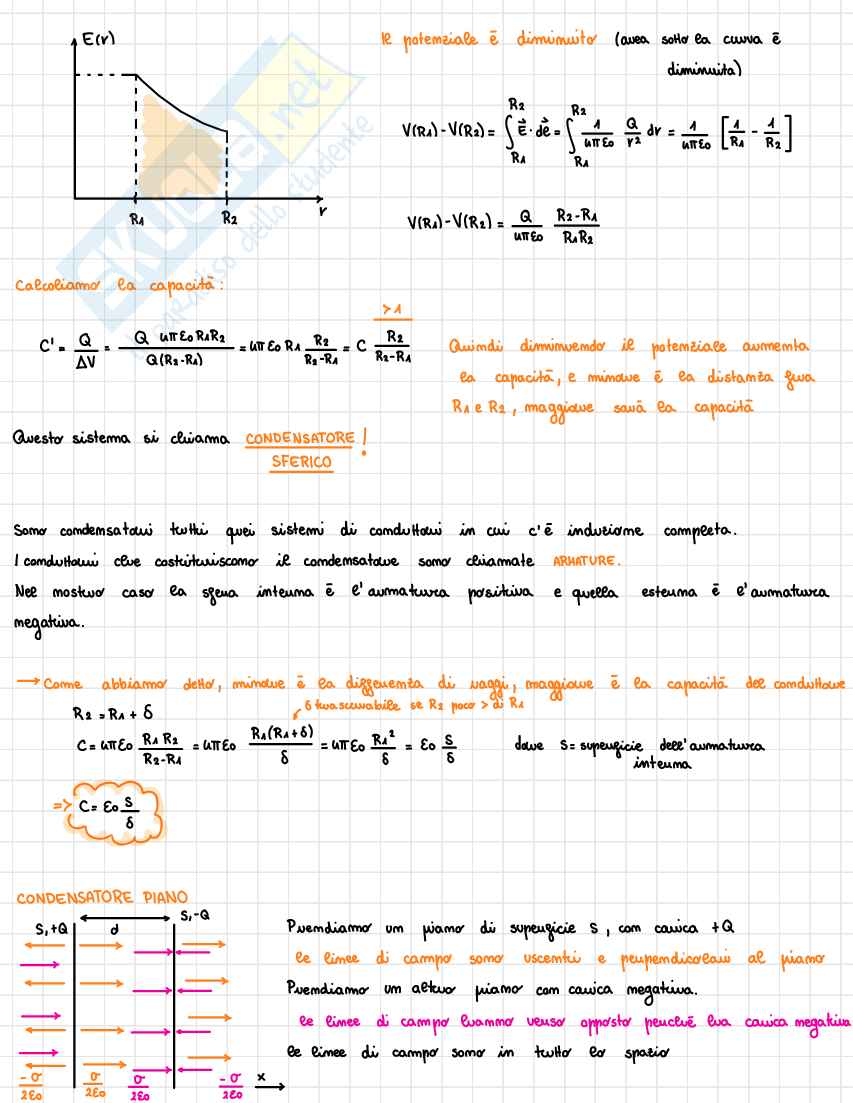 E(r)
R1 R2 r
Il potenziale è diminuito (area sotto la curva è
diminuita)
V(R1) - V(R2) = ∫_{R1}^{R2} E⃗ · dl⃗ = ∫_{R1}^{R2} 1/4πε0 Q/r² dr = 1/4πε0 [1/R1 - 1/R2]
V(R1) - V(R2) = Q/4πε0 (R2-R1)/R1R2
SKUOLA.net
il paradiso dello studente
Calcoliamo la capacità:
C' = Q/ΔV = Q 4πε0 R1R2/Q(R2-R1) = 4πε0 R1 R2/(R2-R1) = C R2/(R2-R1) >1
Quindi diminuendo il potenziale aumenta
la capacità, e minore è la distanza fra
R1 e R2, maggiore sarà la capacità
Questo sistema si chiama CONDENSATORE
SFERICO!
Sono condensatori tutti quei sistemi di conduttori in cui c'è induzione completa.
I conduttori che costituiscono il condensatore sono chiamate ARMATURE.
Nel nostro caso la sfera interna è l'armatura positiva e quella esterna è l'armatura
negativa.
→ Come abbiamo detto, minore è la differenza di raggi, maggiore è la capacità del conduttore
R2 = R1 + δ
δ trascurabile se R2 poco > di R1
C = 4πε0 R1 R2/(R2-R1) = 4πε0 R1(R1+δ)/δ = 4πε0 R1²/δ = ε0 S/δ dove S = superficie dell'armatura
interna
=> C = ε0 S/δ
CONDENSATORE PIANO
S,+Q d S,-Q
-σ/2ε0 σ/2ε0 σ/2ε0 -σ/2ε0 x
Prendiamo un piano di superficie S, con carica +Q
le linee di campo sono uscenti e perpendicolari al piano
Prendiamo un altro piano con carica negativa.
le linee di campo hanno verso opposto perché ha carica negativa
le linee di campo sono in tutto lo spazio